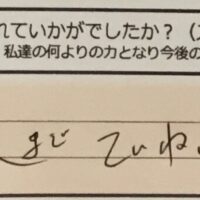 れていかがでしたか？（
私達の何よりの力となり今後の
まじ ていね